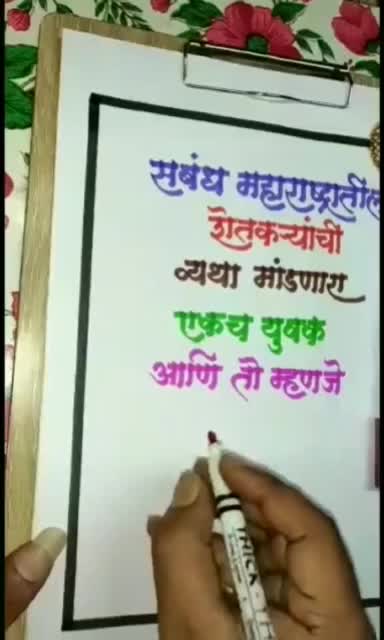 सबंध महाराष्ट्रातील
शेतकऱ्यांची
व्यथा मांडणारा
एकच युवक
आणि तो म्हणजे
THICK